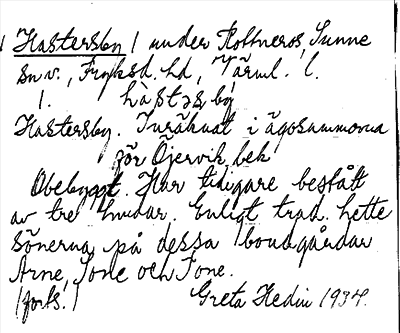 Hastersby / under Rottneros, Sunne
sn., Fryksd. hd, Värml. l.
1. hàstəs by
Hastersby. Inräknat i ägosummorna
för Öjervik, bek
Obebyggt. Har tidigare bestått
av tre gårdar. Enligt trad. hette
sönerna på dessa bondgårdar
Arne, Tone och Tone.
(forts.) Greta Hedin 1934.